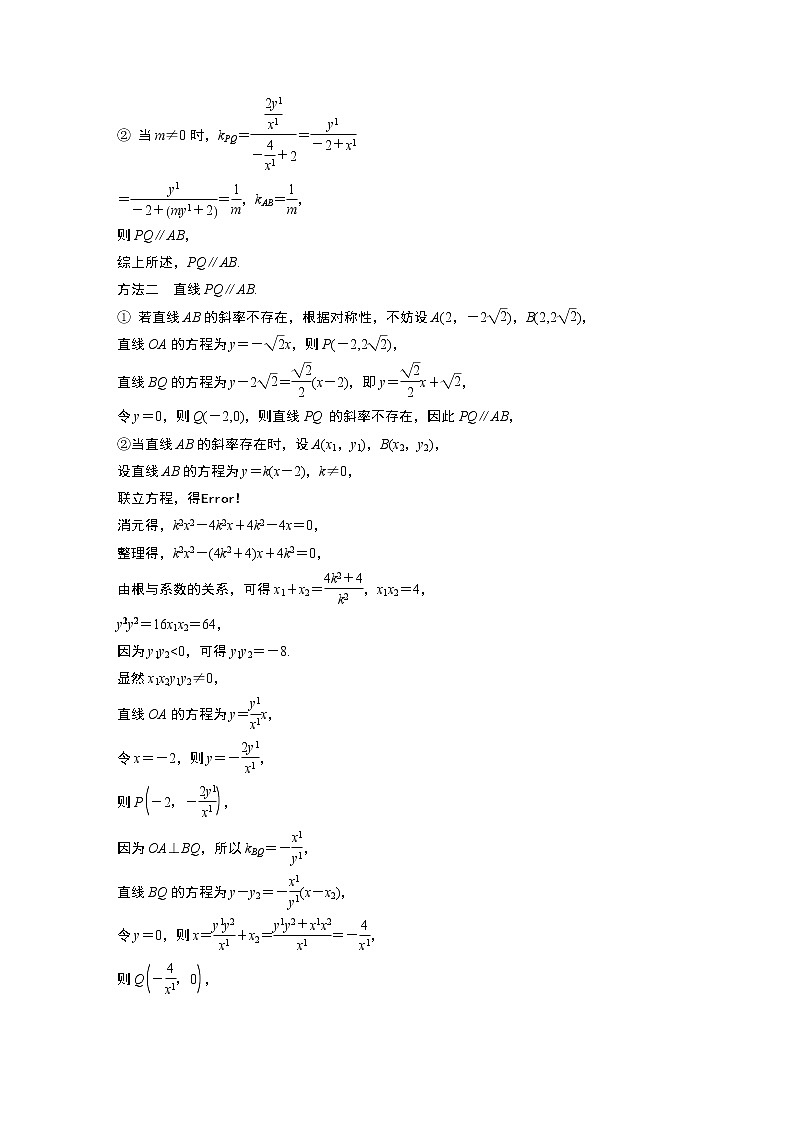 ② 当 m≠0 时，kPQ＝(2y1/x1)/(－4/x1＋2)＝y1/(－2＋x1)
＝y1/(－2＋(my1＋2))＝1/m，kAB＝1/m，
则 PQ∥AB，
综上所述，PQ∥AB.
方法二　直线 PQ∥AB.
① 若直线 AB 的斜率不存在，根据对称性，不妨设 A(2，－2√2)，B(2,2√2)，
直线 OA 的方程为 y＝－√2x，则 P(－2,2√2)，
直线 BQ 的方程为 y－2√2＝√2/2(x－2)，即 y＝√2/2x＋√2，
令 y＝0，则 Q(－2,0)，则直线 PQ 的斜率不存在，因此 PQ∥AB，
②当直线 AB 的斜率存在时，设 A(x1，y1)，B(x2，y2)，
设直线 AB 的方程为 y＝k(x－2)，k≠0，
联立方程，得Error!
消元得，k²x²－4k²x＋4k²－4x＝0，
整理得，k²x²－(4k²＋4)x＋4k²＝0，
由根与系数的关系，可得 x1＋x2＝(4k²＋4)/k²，x1x2＝4，
y²1y²2＝16x1x2＝64，
因为 y1y2<0，可得 y1y2＝－8.
显然 x1x2y1y2≠0，
直线 OA 的方程为 y＝y1/x1x，
令 x＝－2，则 y＝－2y1/x1，
则 P(－2，－2y1/x1)，
因为 OA⊥BQ，所以 kBQ＝－x1/y1，
直线 BQ 的方程为 y－y2＝－x1/y1(x－x2)，
令 y＝0，则 x＝y1y2/x1＋x2＝(y1y2＋x1x2)/x1＝－4/x1，
则 Q(－4/x1，0)，